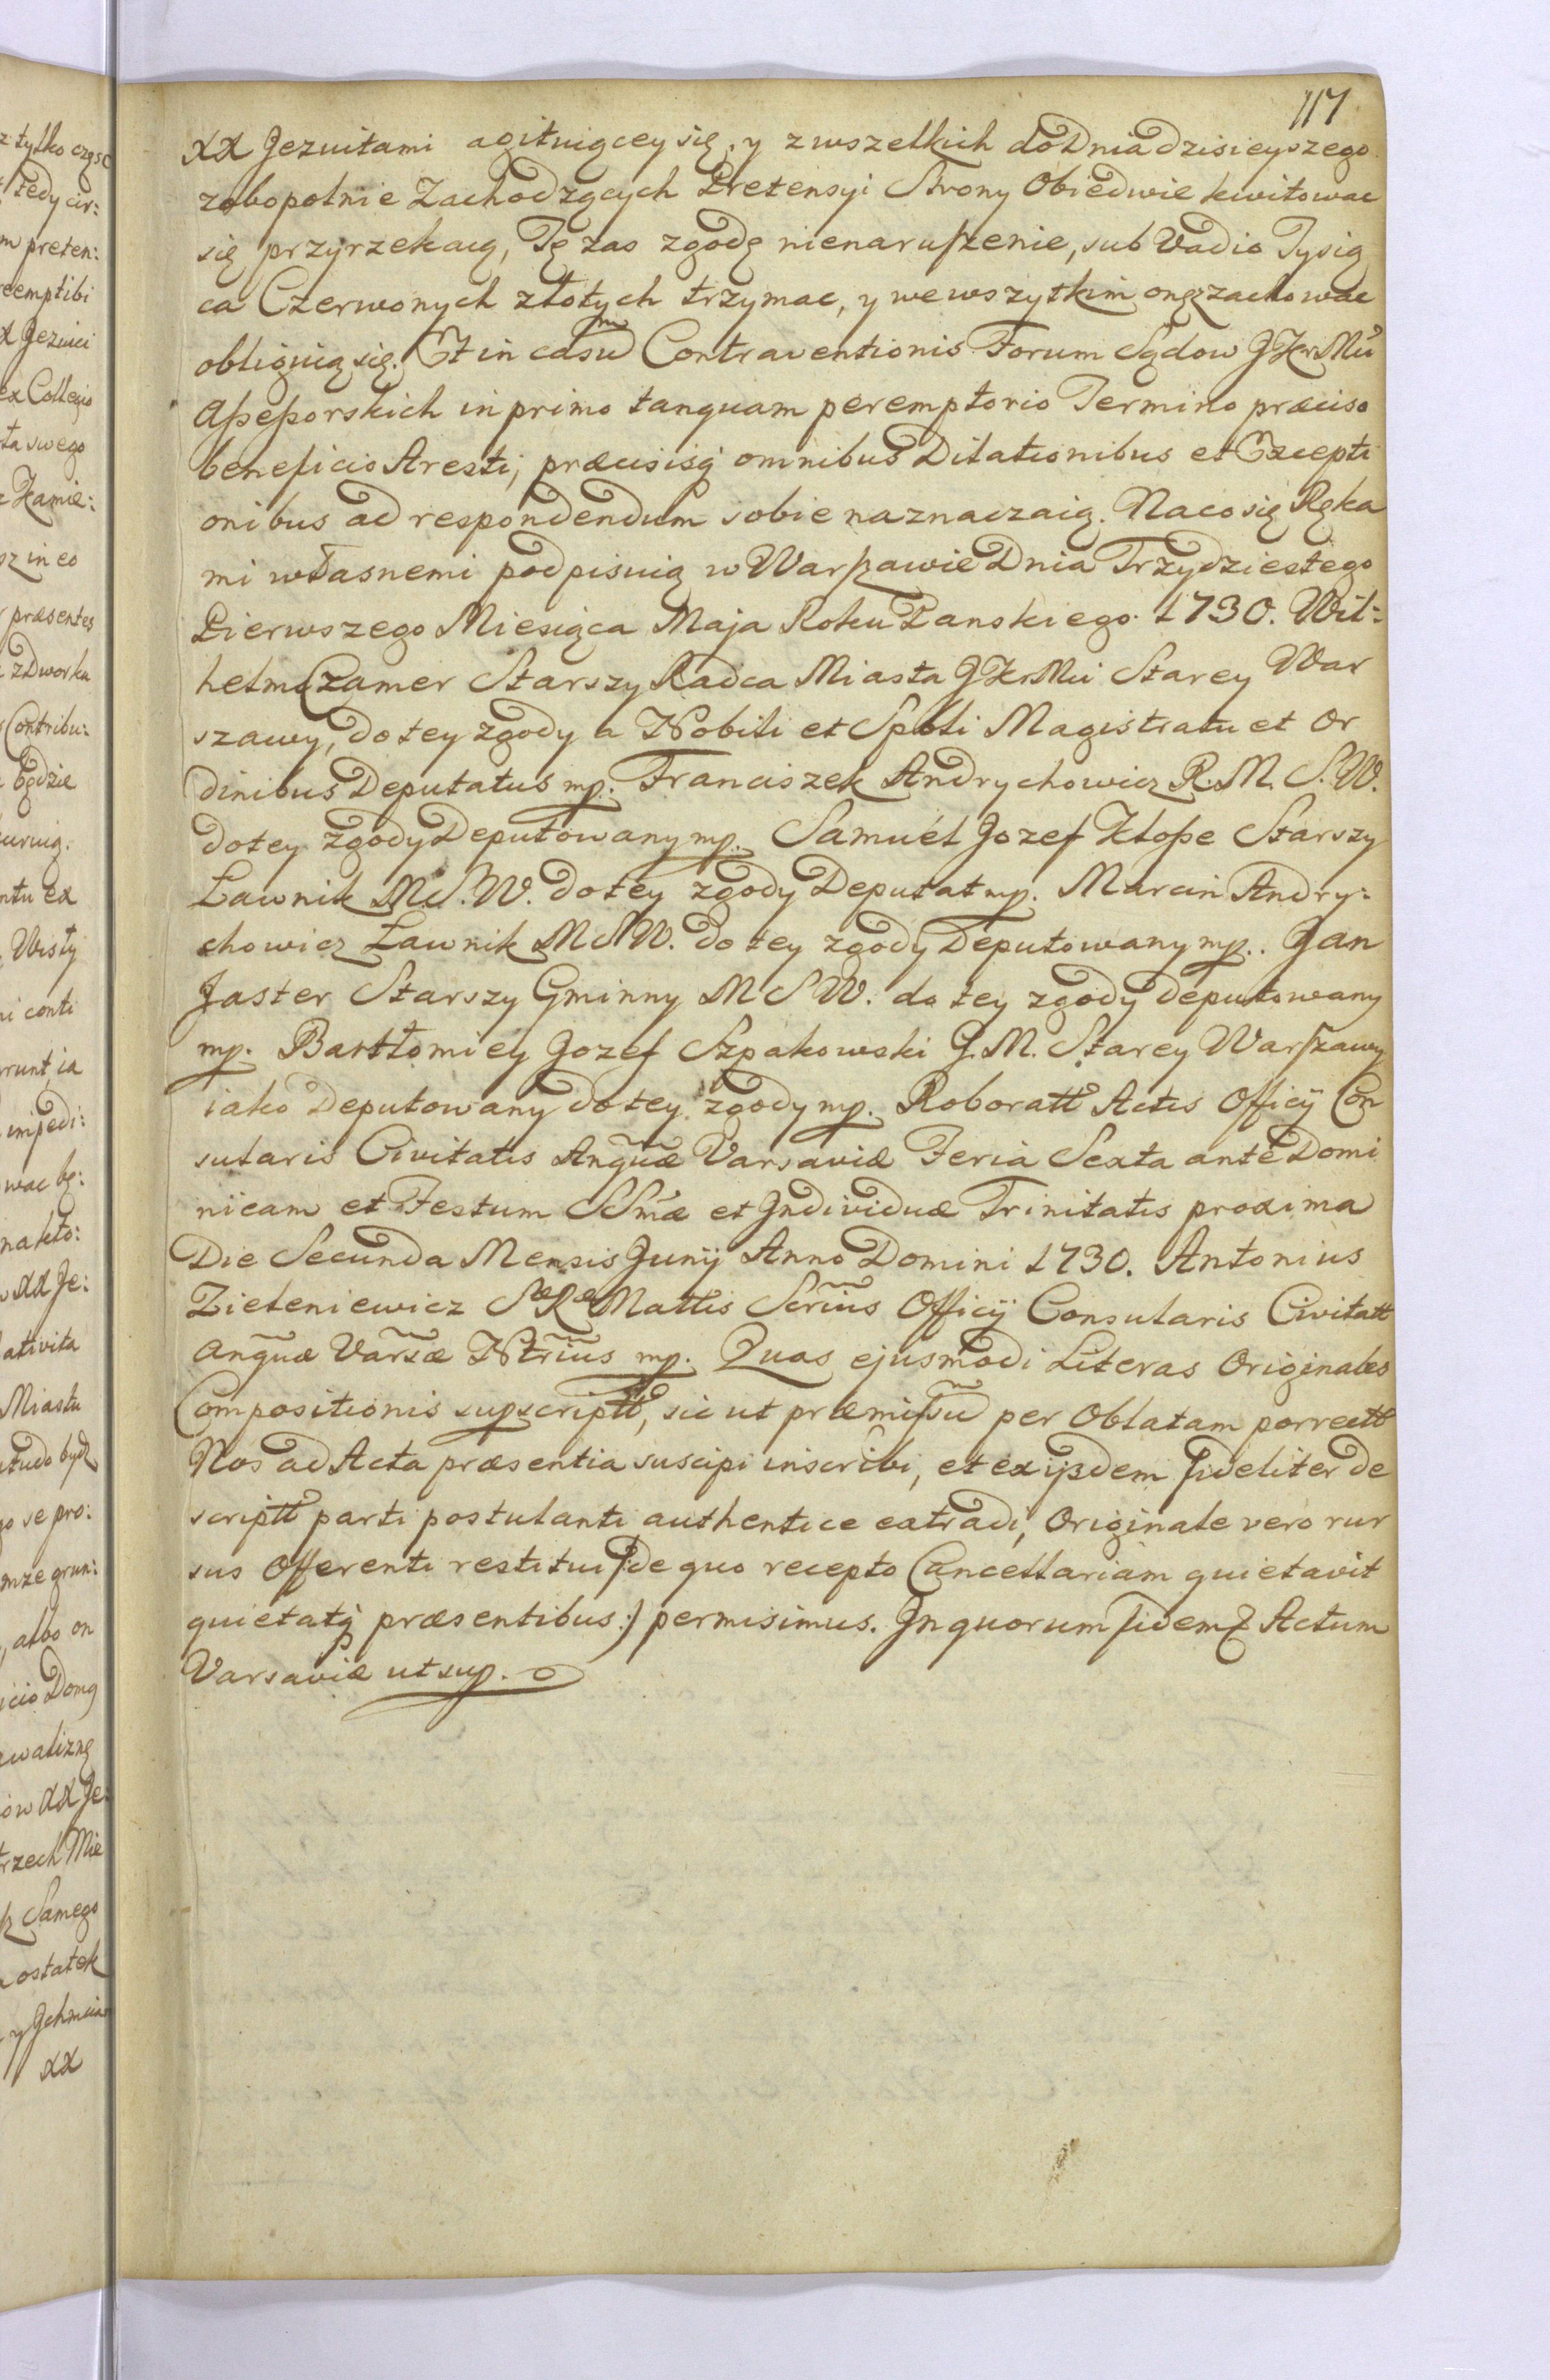 117
XX Jezuitami agituiącey się, y z wszelkich do Dnia dzisieyszego
zobopolnie Zachodzących Pretensyi Strony Obiedwie kwitowac
się przyrzekaią, Tę zas zgodę nienaruszenie, sub Vadio Tysią
ca Czerwonych złotych trzymac, y we wszytkim onęz zachowac
obliguią się. Et in casum Contraventionis Forum Sądow JKrMci
Assessorskich in primo tanquam peremptorio Termino præciso
beneficio Aresti, præcisisq omnibus Dilationibus et Excepti
onibus ad respondendum sobie naznaczaią. Naco się Ręka
mi własnemi podpisuią w Warszawie Dnia Trzydziestego
Pierwszego Miesiąca Maja Roku Panskiego 1730. Wil:
helm Czamer Starszy Radca Miasta JKrMci Starey War
szawy, do tey zgody a Nobili et Spbli Magistratu et Or
dinibus Deputatus mp. Franciszek Andrychowicz R. M. S. W.
do tey zgody Deputowany mp. Samuel Jozef Klosse Starszy
Ławnik M. S. W. do tey zgody Deputat mp. Marcin Andry:
chowicz Ławnik M S W. do tey zgody Deputowany mp. Jan
Jaster Starszy Gminny M S W. do tey zgody deputowany
mp. Bartłomiey Jozef Szpakowski G. M. Starey Warszawy
iako Deputowany do tey zgody mp. Roboratt Actis Officij Con
sularis Civitatis Anquæ Varsaviæ Feria Sexta ante Domi
nicam et Festum SSmæ et Individuæ Trinitatis proxima
Die Secunda Mensis Junij Anno Domini 1730. Antonius
Zieleniewicz SæRæ Mattis Scrius Officij Consularis Civitatt
Anquæ Varsæ Ntrius mp. Quas ejusmodi Literas Originales
Compositionis supscriptt, sic ut præmissum per Oblatam porrectt
Nos ad Acta præsentia suscipi inscribi, et ex ijsdem fideliter de
scriptt parti postulanti authentice extradi, Originale vero rur
sus Offerenti restitui /:de quo recepto Cancellariam quietavit
quietatq præsentibus:/ permisimus. In quorum fidem Actum
Varsaviæ ut sup.